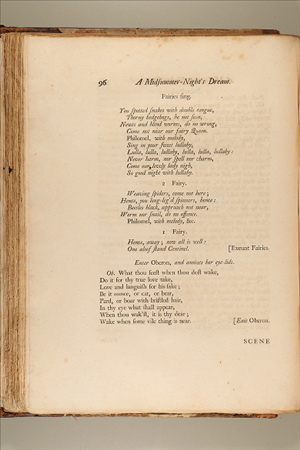 96 A Midsummer-Night's Dream.
Fairies sing.
You spotted snakes with double tongue,
Thorny hedgehogs, be not seen,
Newts and blind worms, do no wrong,
Come not near our fairy Queen.
Philomel, with melody,
Sing in your sweet lullaby,
Lulla, lulla, lullaby, lulla, lulla, lullaby:
Never harm, nor spell nor charm,
Come our lovely lady nigh,
So good night with lullaby.
2 Fairy.
Weaving spiders, come not here;
Hence, you long-leg'd spinners, hence:
Beetles black, approach not near,
Worm nor snail, do no offence.
Philomel, with melody, &c.
1 Fairy.
Hence, away; now all is well:
One aloof stand Centinel. [Exeunt Fairies.
Enter Oberon, and anoints her eye-lids.
Ob. What thou seest when thou dost wake,
Do it for thy true love take,
Love and languish for his sake;
Be it ounce, or cat, or bear,
Pard, or boar with bristled hair,
In thy eye what shall appear,
When thou wak'st, it is thy dear;
Wake when some vile thing is near. [Exit Oberon.
SCENE